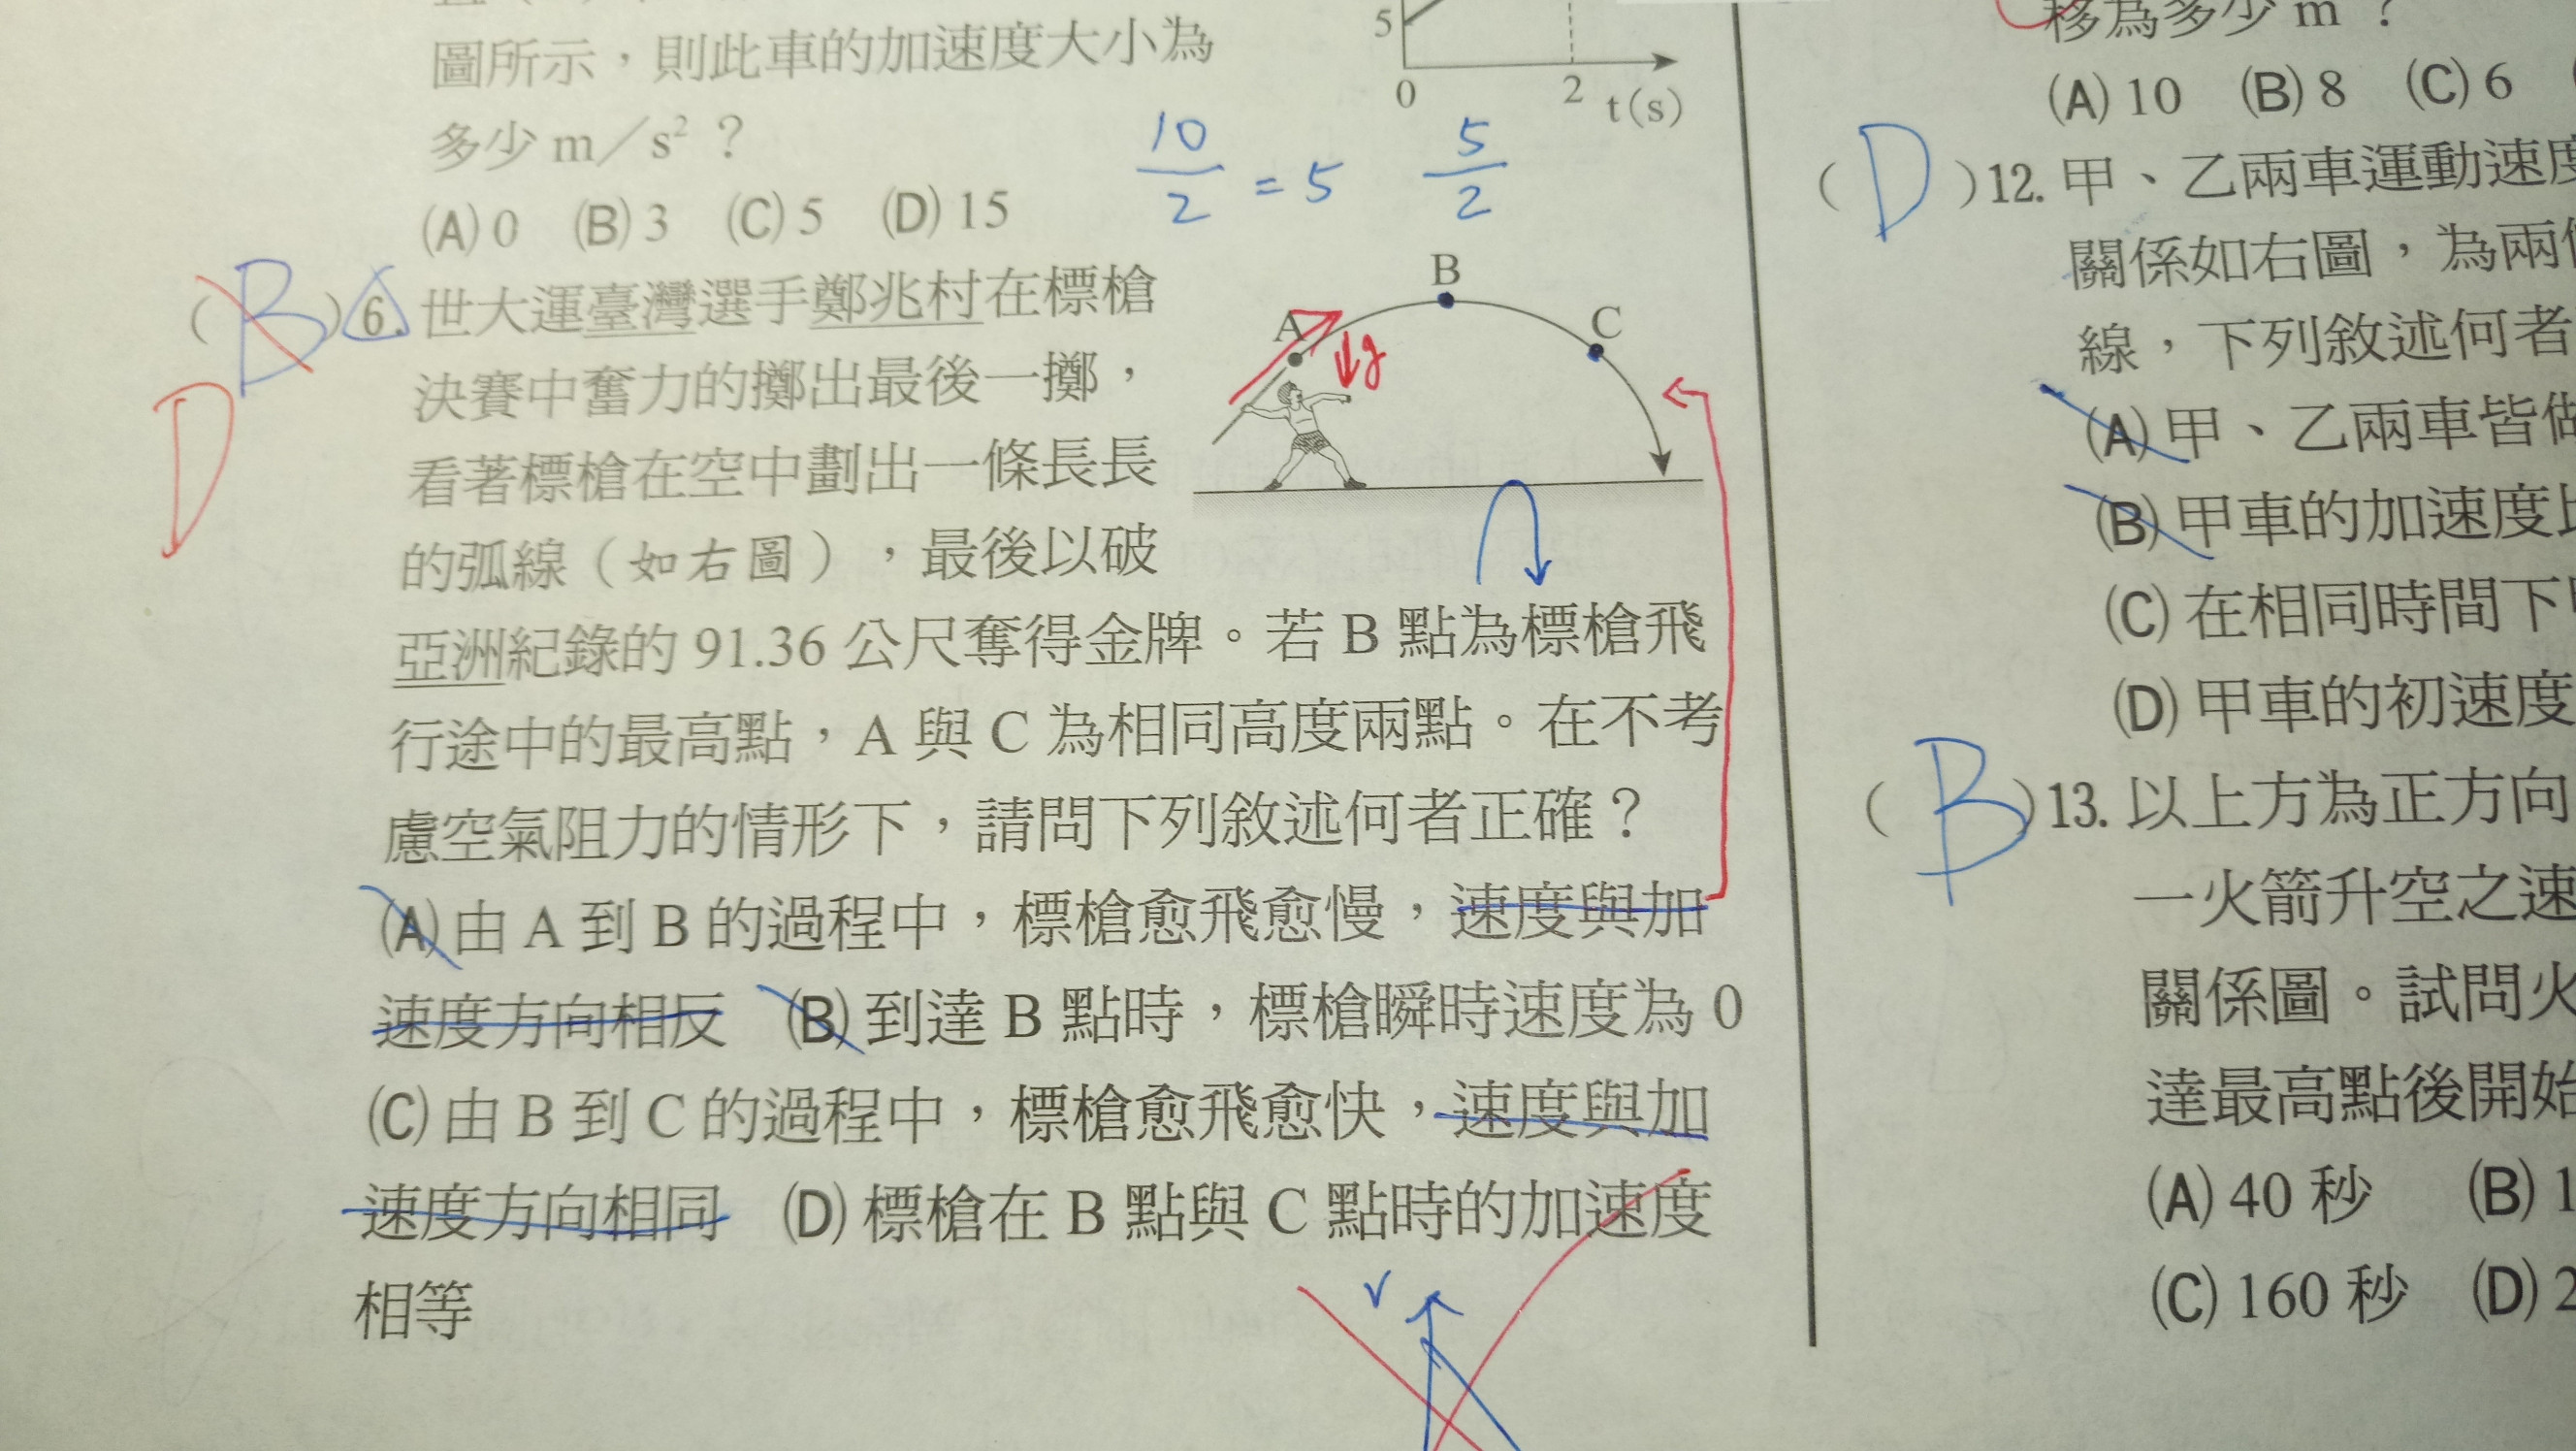 圖所示，則此車的加速度大小為
多少 m／s² ？
(A) 0 (B) 3 (C) 5 (D) 15
5
0 2 t(s)
10/2 = 5 5/2
(B) 6. 世大運臺灣選手鄭兆村在標槍
D
決賽中奮力的擲出最後一擲，
看著標槍在空中劃出一條長長
的弧線（如右圖），最後以破
亞洲紀錄的 91.36 公尺奪得金牌。若 B 點為標槍飛
行途中的最高點，A 與 C 為相同高度兩點。在不考
慮空氣阻力的情形下，請問下列敘述何者正確？
(A) 由 A 到 B 的過程中，標槍愈飛愈慢，速度與加
速度方向相反 (B) 到達 B 點時，標槍瞬時速度為 0
(C) 由 B 到 C 的過程中，標槍愈飛愈快，速度與加
速度方向相同 (D) 標槍在 B 點與 C 點時的加速度
相等
A B C
g
v
移為多少 m ？
(A) 10 (B) 8 (C) 6
(D) 12. 甲、乙兩車運動速度
關係如右圖，為兩
線，下列敘述何者
(A) 甲、乙兩車皆做
(B) 甲車的加速度比
(C) 在相同時間下
(D) 甲車的初速度
(B) 13. 以上方為正方向
一火箭升空之速
關係圖。試問火
達最高點後開始
(A) 40 秒 (B) 1
(C) 160 秒 (D) 2